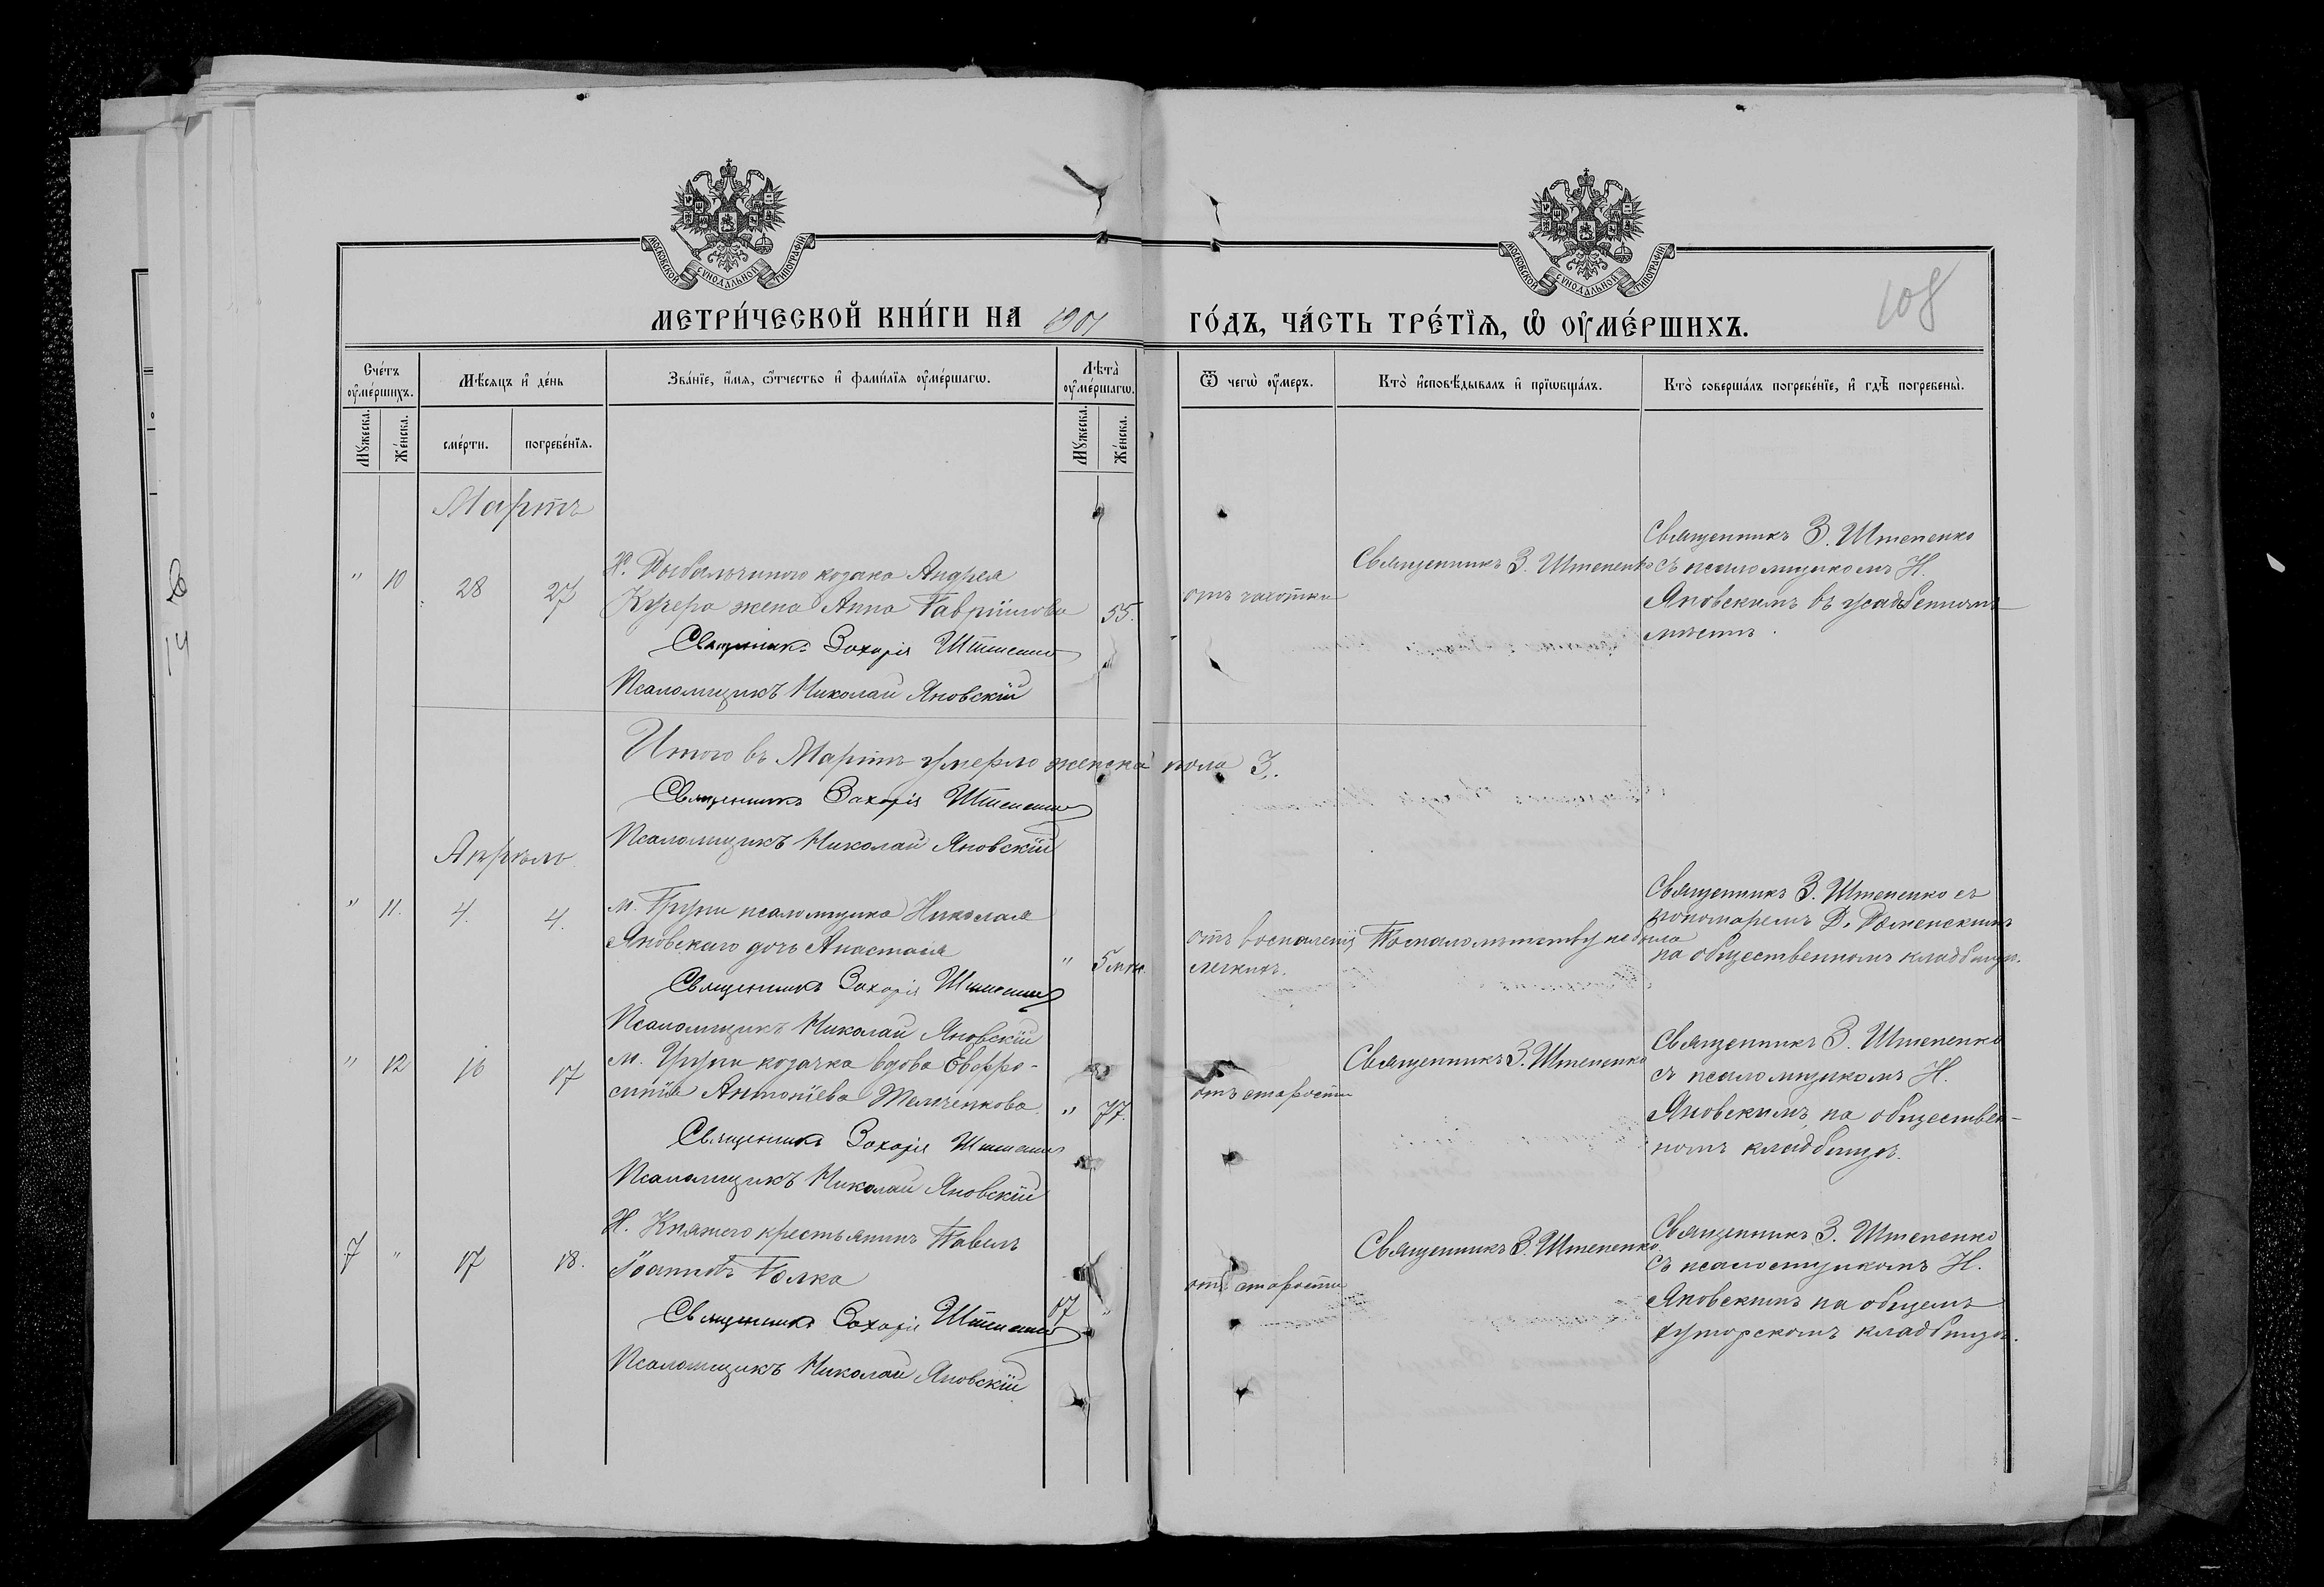 МОСКОВСКОЙ СѴНОДАЛЬНОЙ ТИПОГРАФІИ
МОСКОВСКОЙ СѴНОДАЛЬНОЙ ТИПОГРАФІИ
108
МЕТРИ́ЧЕСКОЙ КНИ́ГИ НА 1901 ГО́ДЪ, ЧА́СТЬ ТРЕ́ТІѦ, Ѡ ОУМЕ́РШИХЪ.
Сче́тъ оумершихъ.
Мѣсяцъ и де́нь
Зва́нїе, и҆мя, ѿчество и҆ фами́лїя оуме́ршагѡ.
Лѣта̀ оуме́ршагѡ.
Ѿ чегѡ̀ оу҆меръ.
Кто̀ и҆сповѣ́дывалъ и҆ прїѡбща́лъ.
Кто̀ соверша́лъ погребе́нїе, и҆ гдѣ̀ погребены̀.
Мꙋжеска.
Же́нска.
сме́рти.
погребе́нїя.
Мꙋжеска.
Же́нска.
Мартъ
" 10 28 27
Х. Рыбальчиного козака Андрея
Кучера жена Анна Гавріилова 55.
Священникъ Захарія Штепенко
Псаломщикъ Николай Яновскій
отъ чахотки
Священникъ З. Штепенко
Священникъ З. Штепенко
съ псаломщикомъ Н.
Яновскимъ въ усадебномъ
мѣстѣ.
Итого въ Мартѣ умерло женска пола 3.
Священникъ Захарія Штепенко
Псаломщикъ Николай Яновскій
Апрѣль
" 11. 4. 4.
м. Груни псаломщика Николая
Яновскаго дочь Анастасія " 5 мѣс.
Священникъ Захарія Штепенко
Псаломщикъ Николай Яновскій
отъ воспаленія
легкихъ.
По малолѣтству не была
Священникъ З. Штепенко съ
пономаремъ Р. Роменскимъ
на общественномъ кладбищѣ.
" 12 16 17
м. Груни козачка вдова Евфро-
синія Антоніева " 77.
Священникъ Захарія Штепенко
Псаломщикъ Николай Яновскій
отъ старости
Священникъ З. Штепенко
Священникъ З. Штепенко
съ псаломщикомъ Н.
Яновскимъ, на обществен-
номъ кладбищѣ.
7 " 17 18.
Х. Княжего крестьянинъ Павелъ
Іоанновъ Голка 67 "
Священникъ Захарія Штепенко
Псаломщикъ Николай Яновскій
отъ старости
Священникъ З. Штепенко
Священникъ З. Штепенко
съ псаломщикомъ Н.
Яновскимъ на общемъ
хуторскомъ кладбищѣ.